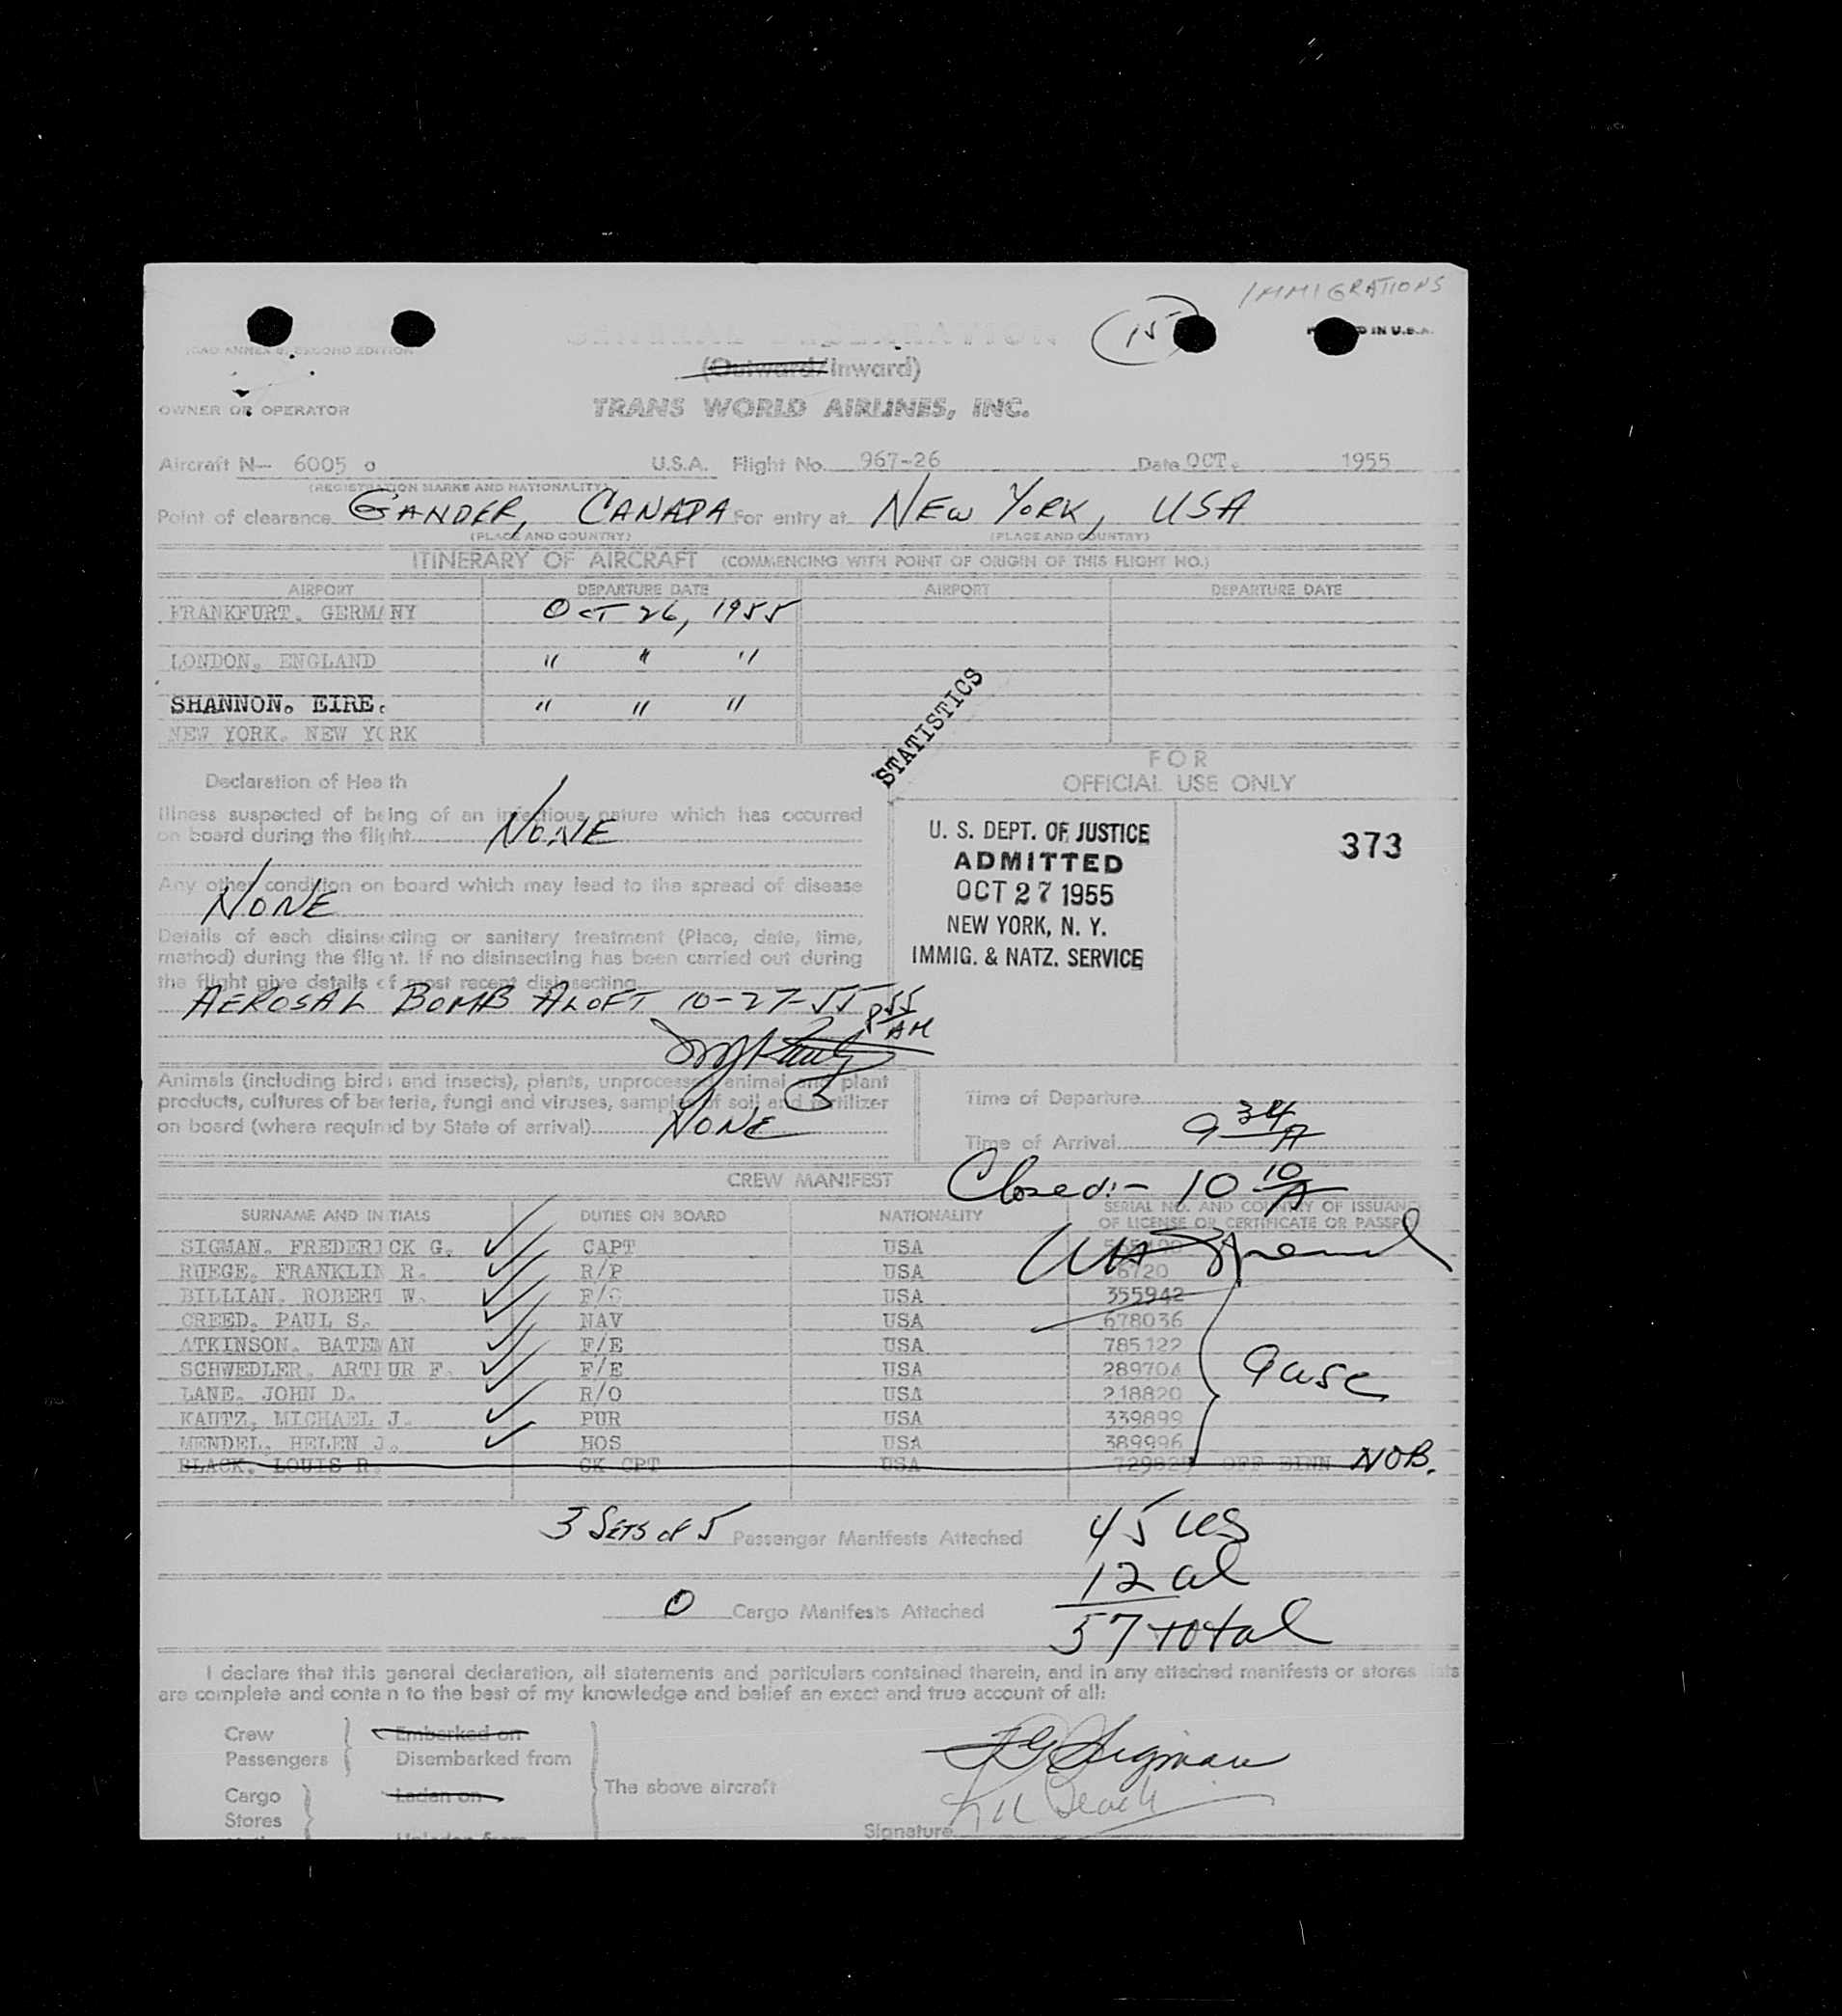 IMMIGRATIONS
15
D IN U.S.A.
ICAO ANNEX 9, SECOND EDITION
(Outward/Inward)
OWNER OR OPERATOR
TRANS WORLD AIRLINES, INC.
Aircraft N- 6005 U.S.A. Flight No. 967-26 Date OCT. 1955
(REGISTRATION MARKS AND NATIONALITY)
Point of clearance GANDER, CANADA For entry at NEW YORK, USA
(PLACE AND COUNTRY) (PLACE AND COUNTRY)
ITINERARY OF AIRCRAFT (COMMENCING WITH POINT OF ORIGIN OF THIS FLIGHT NO.)
AIRPORT DEPARTURE DATE AIRPORT DEPARTURE DATE
FRANKFURT. GERMANY OCT 26, 1955
LONDON. ENGLAND " " "
SHANNON. EIRE. " " "
NEW YORK. NEW YORK
STATISTICS
FOR
OFFICIAL USE ONLY
Declaration of Health
Illness suspected of being of an infectious nature which has occurred
on board during the flight NONE
Any other condition on board which may lead to the spread of disease
NONE
Details of each disinsecting or sanitary treatment (Place, date, time,
method) during the flight. If no disinsecting has been carried out during
the flight give details of most recent disinsecting
AEROSAL BOMB ALOFT 10-27-55 8 55 AM
U. S. DEPT. OF JUSTICE
ADMITTED
OCT 27 1955
NEW YORK, N. Y.
IMMIG. & NATZ. SERVICE
373
Animals (including birds and insects), plants, unprocessed animal and plant
products, cultures of bacteria, fungi and viruses, samples of soil and fertilizer
on board (where required by State of arrival) NONE
Time of Departure
Time of Arrival 9 34 A
Closed:- 10 10 A
CREW MANIFEST
SURNAME AND INITIALS DUTIES ON BOARD NATIONALITY SERIAL NO. AND COUNTRY OF ISSUANCE
OF LICENSE OR CERTIFICATE OR PASSP
SIGMAN. FREDERICK G. CAPT USA
RUEGE. FRANKLIN R. R/P USA 6720
BILLIAN. ROBERT W. F/O USA 355942
CREED. PAUL S. NAV USA 678036
ATKINSON. BATEMAN F/E USA 785122
SCHWEDLER. ARTHUR F. F/E USA 289704
LANE. JOHN D. R/O USA 218820
KAUTZ, MICHAEL J. PUR USA 339899
MENDEL, HELEN J. HOS USA 389996
BLACK. LOUIS R. CK CPT USA OFF NOB.
9 usc
3 SETS of 5 Passenger Manifests Attached
45 us
12 al
57 total
0 Cargo Manifests Attached
I declare that this general declaration, all statements and particulars contained therein, and in any attached manifests or stores lists
are complete and contain to the best of my knowledge and belief an exact and true account of all:
Crew Embarked on
Passengers Disembarked from
The above aircraft
Cargo Laden on
Stores
FG Sigman
Signature